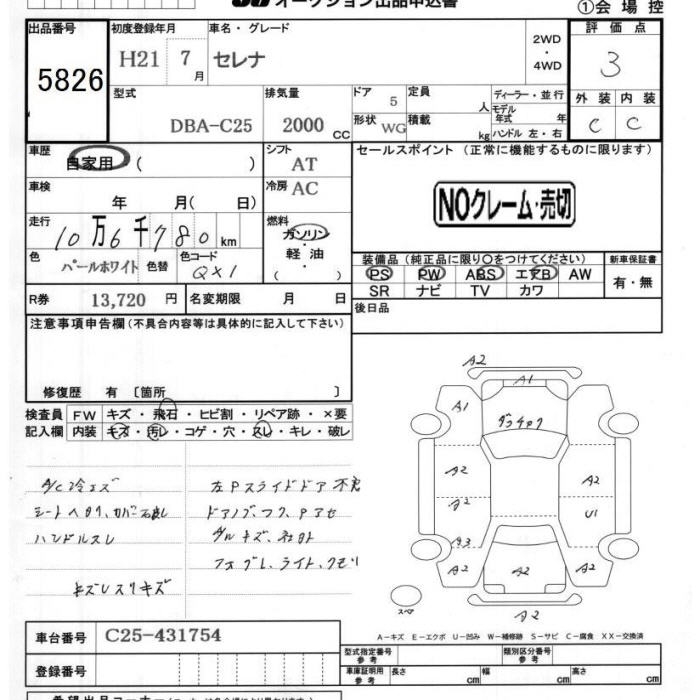 オークション出品申込書
①会場控
出品番号 5826
初度登録年月 H21 7月
車名・グレード セレナ
2WD・4WD
評価点 3
外装 C 内装 C
型式 DBA-C25
排気量 2000 CC
ドア 5
形状 WG
定員 人
積載 kg
ディーラー・並行
モデル年式 年
ハンドル 左・右
車歴 自家用 ( )
シフト AT
セールスポイント (正常に機能するものに限ります)
車検 年 月( 日)
冷房 AC
NOクレーム・売切
走行 10万6千780km
燃料 ガソリン・軽油・( )
色 パールホワイト 色替 色コード QX1
装備品 (純正品に限り○をつけてください)
新車保証書
PS PW ABS エアB AW
有・無
SR ナビ TV カワ
R券 13,720 円 名変期限 月 日
後日品
注意事項申告欄 (不具合内容等は具体的に記入して下さい)
修復歴 有 〔箇所 〕
検査員 FW キズ・飛石・ヒビ割・リペア跡・×要
記入欄 内装 キズ・汚レ・コゲ・穴・スレ・キレ・破レ
A/C冷エズ
左Pスライドドア不良
ハンドルスレ
キズレスリキズ
A2
A1
A1
A2
A2
A2
U1
A3
A2
A2
A2
A2
スペア
A−キズ E−エクボ U−凹み W−補修跡 S−サビ C−腐食 XX−交換済
車台番号 C25-431754
型式指定番号 参考
類別区分番号 参考
登録番号
車庫証明用 参考 長さ cm 幅 cm 高さ cm